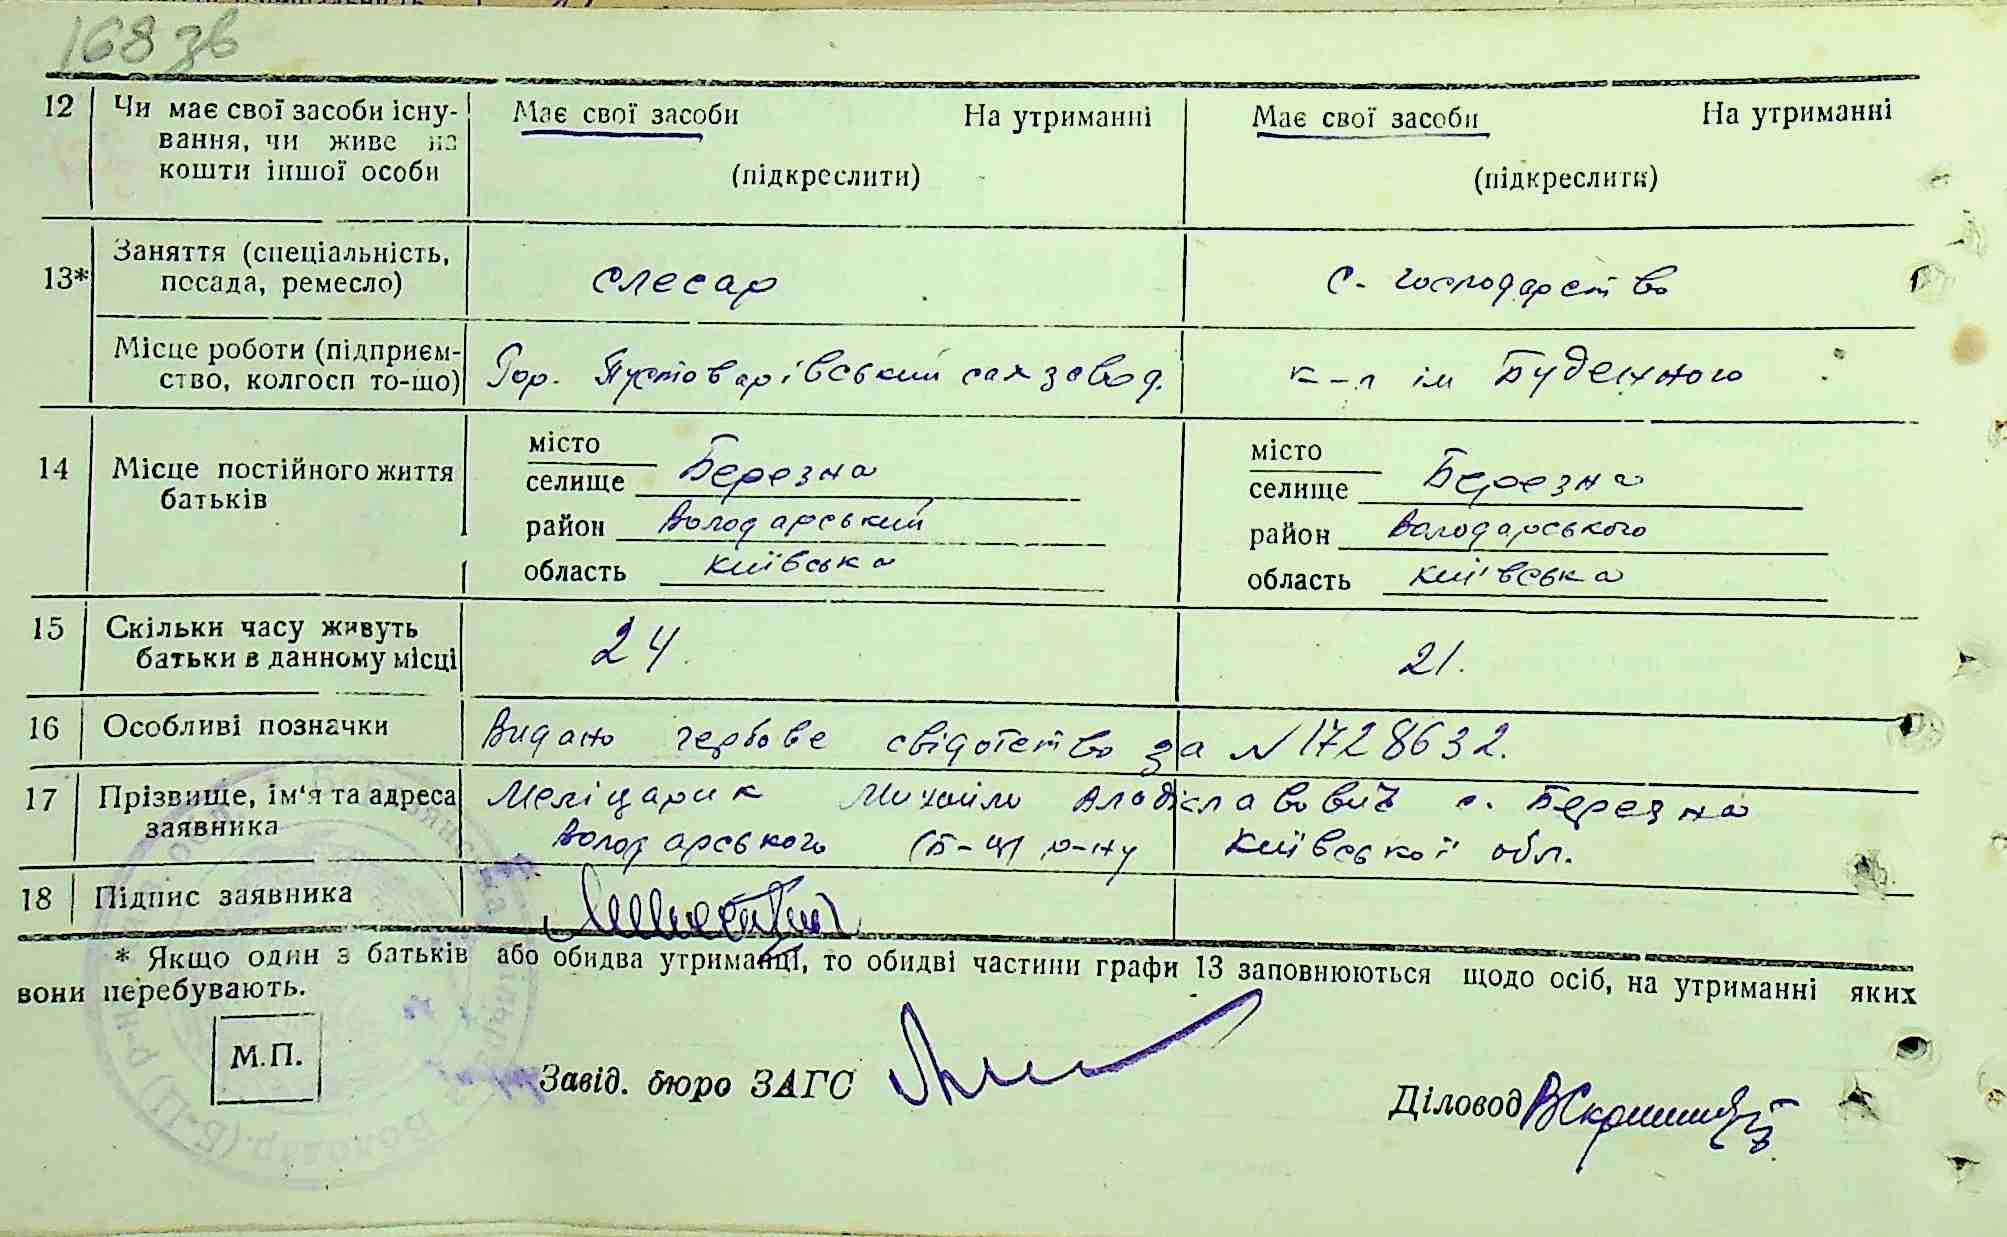 168 зв
12 Чи має свої засоби існу- Має свої засоби На утриманні Має свої засоби На утриманні
вання, чи живе на
кошти іншої особи (підкреслити) (підкреслити)
13* Заняття (спеціальність,
посада, ремесло) слесар с-господарство
Місце роботи (підприєм-
ство, колгосп то-що) Гор. Пустоварівський сах завод. к-п ім Буденного
14 Місце постійного життя
батьків
місто місто
селище Березна селище Березна
район Володарський район Володарського
область Київська область Київська
15 Скільки часу живуть
батьки в данному місці 24. 21.
16 Особливі позначки Видано гербове свідотство за N 1728632.
17 Прізвище, ім'я та адреса
заявника Меліцарик Михайло Владіславович с. Березна
Володарського (Б-Ц) р-ну Київської обл.
18 Підпис заявника
* Якщо один з батьків або обидва утриманці, то обидві частини графи 13 заповнюються щодо осіб, на утриманні яких
вони перебувають.
М.П.
Завід. бюро ЗАГС
Діловод